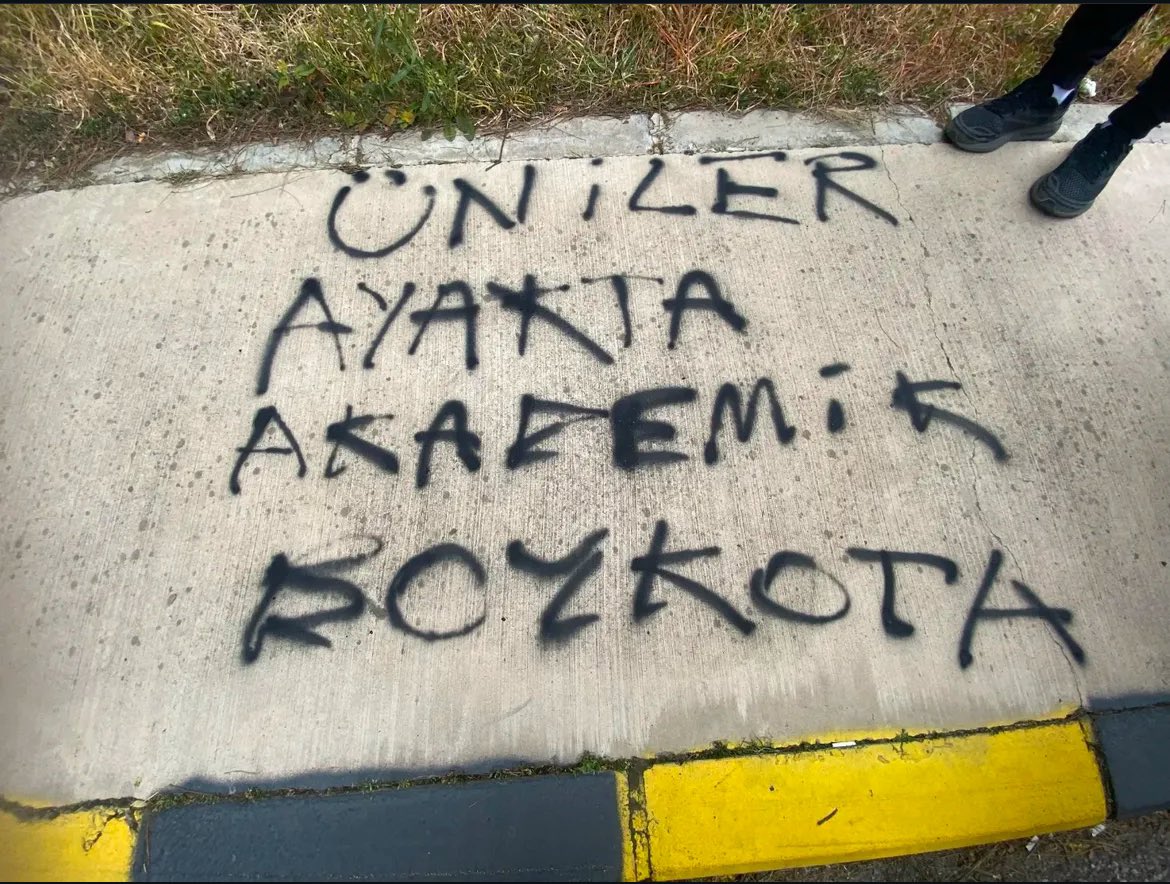 ÜNİLER
AYAKTA
AKADEMİK
BOYKOTA